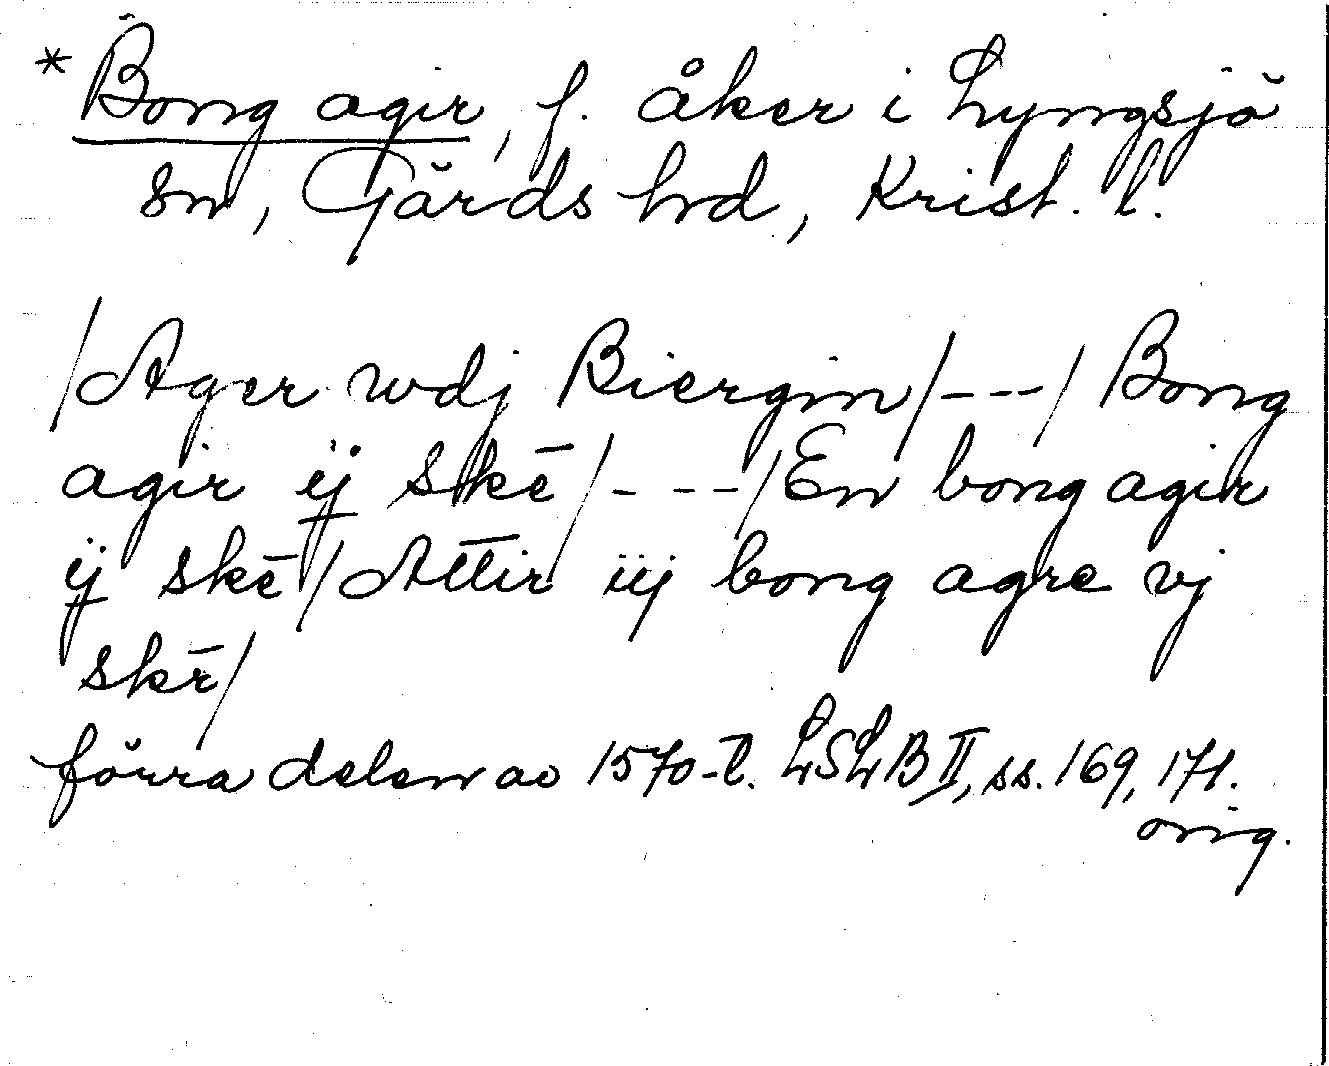 * Bong agir, f. åker i Lyngsjö
sn, Gärds hrd, Krist. l.
/Ager wdj Biergin/---/ Bong
agir ij skē/---/En bong agir
ij skē/Attir iij bong agre vj
skē/
förra delen av 1570-t. LSLB II, ss. 169, 171.
orig.